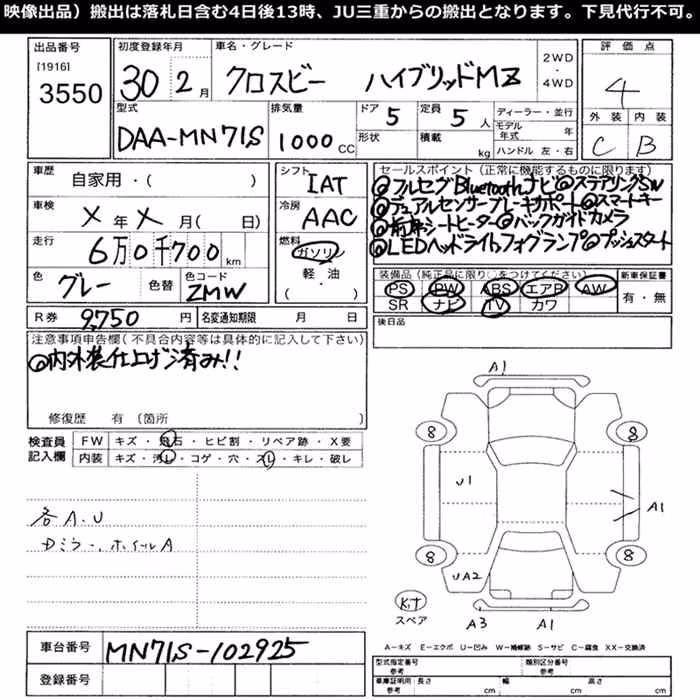 映像出品）搬出は落札日含む4日後13時、JU三重からの搬出となります。下見代行不可。
出品番号
[1916]
3550
初度登録年月
30 2月
車名・グレード
クロスビー ハイブリッドMZ
2WD・4WD
評価点
4
外装 内装
C B
型式
DAA-MN71S
排気量
1000CC
ドア 5
形状
定員 5人
積載 kg
ディーラー・並行
モデル年式 年
ハンドル 左・右
車歴
自家用・( )
車検
×年×月( 日)
走行
6万0千700km
色
グレー
色替
色コード
ZMW
シフト
IAT
冷房
AAC
燃料
ガソリン
軽・油
( )
セールスポイント（正常に機能するものに限ります）
◎フルセグBluetoothナビ◎ステアリングSW
◎デュアルセンサーブレーキサポート◎スマートキー
◎前席シートヒーター◎バックガイドカメラ
◎LEDヘッドライト,フォグランプ◎プッシュスタート
装備品（純正品に限り○をつけてください）
PS PW ABS エアB AW
SR ナビ TV カワ
新車保証書
有・無
後日品
R券 9,750円
名変通知期限 月 日
注意事項申告欄（不具合内容等は具体的に記入して下さい）
◎内外装仕上げ済み!!
修復歴 有（箇所 ）
検査員記入欄
FW キズ・飛石・ヒビ割・リペア跡・X要
内装 キズ・汚レ・コゲ・穴・スレ・キレ・破レ
各A.U
Dミラー、ホイルA
A1
8
8
U1
A1
8
8
UA2
KT
スペア
A3
A1
A－キズ E－エクボ U－凹み W－補修跡 S－サビ C－腐食 XX－交換済
車台番号
MN71S-102925
登録番号
型式指定番号 参考
類別区分番号 参考
車庫証明用 参考
長さ cm
幅 cm
高さ cm